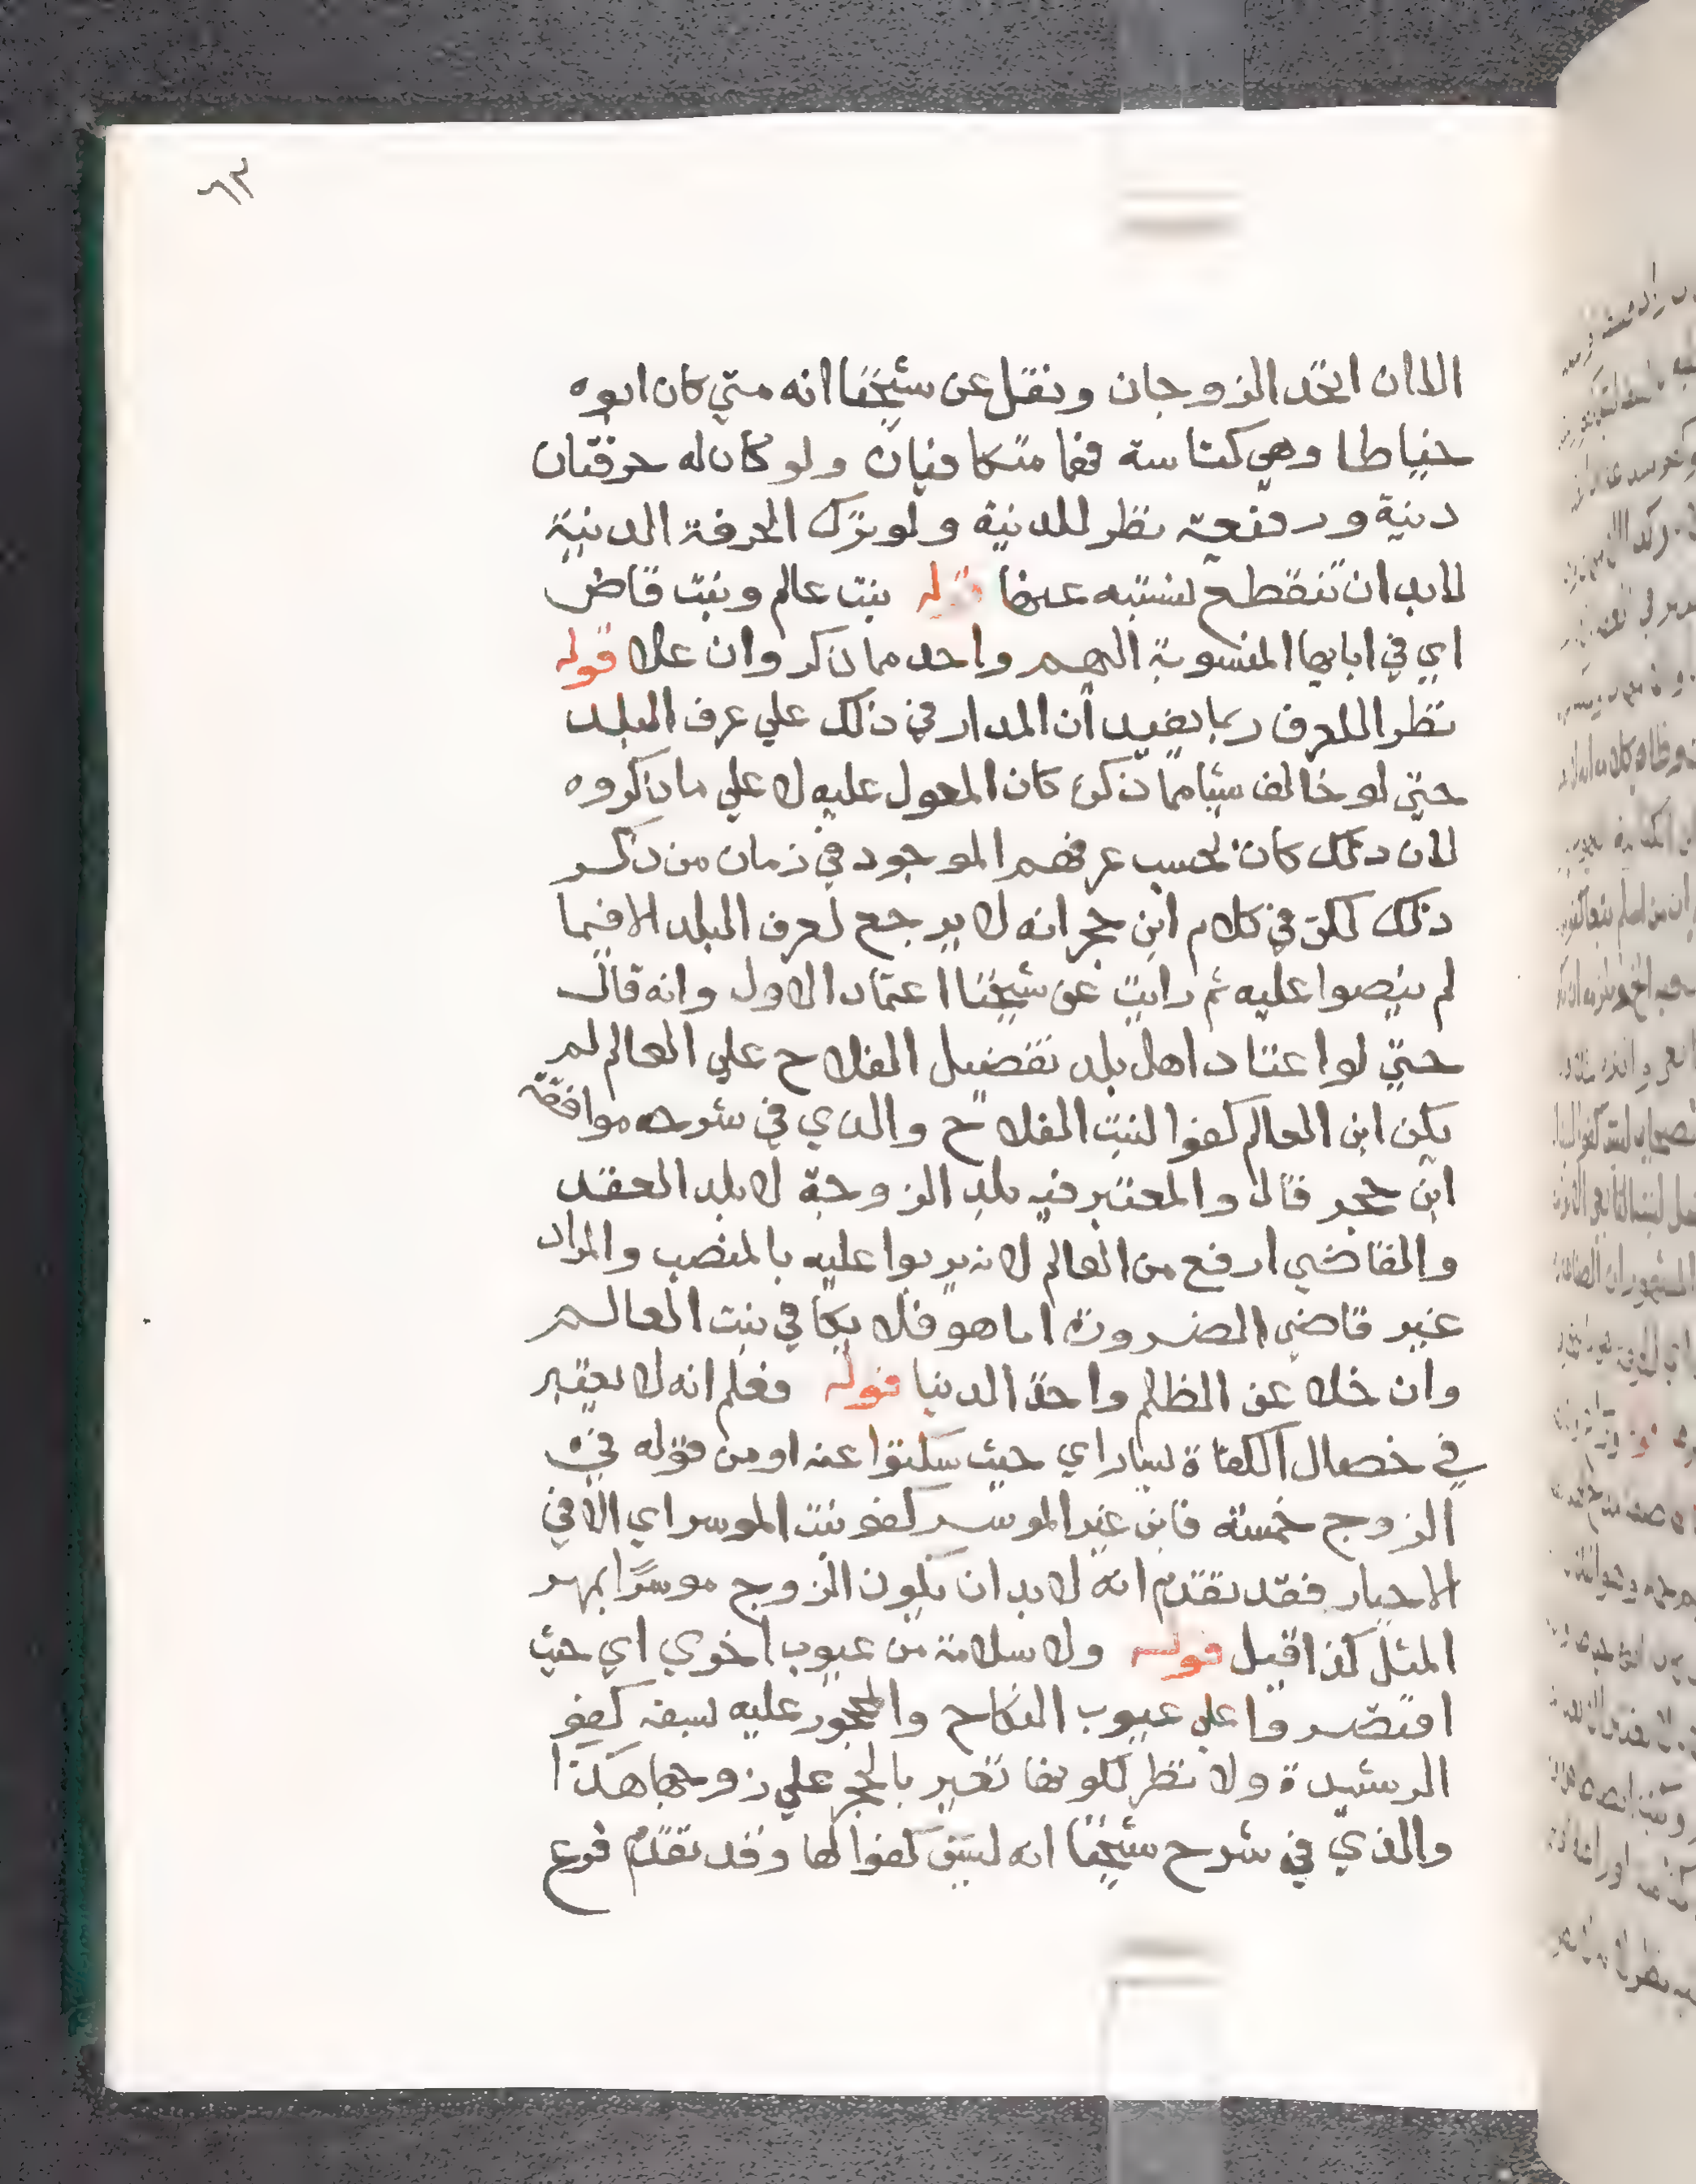 ٦٣
الاان اتحد الزوجان ونقل عن شيخنا انه متي كان ابوه
خياطا وهي كناسة فهما متكافيان ولو كان له حرفتان
دنية ورفيعة نظر للدنية ولو ترك الحرفة الدنية
لابد ان تنقطع نسبته عنها قوله بنت عالم وبنت قاض
اي في ابايها المنسوبة اليهم واحد مما ذكر وان علا قوله
نظرا للعرف ربما يفيد ان المدار في ذلك علي عرف البلد
حتي لو خالف شيا مما ذكر كان المعول عليه لا علي ما ذكروه
لان ذلك كان بحسب عرفهم الموجود في زمان من ذكر
ذلك لكن في كلام ابن حجر انه لا يرجع لعرف البلد الا فيما
لم ينصوا عليه ثم رايت عن شيخنا اعتماد الاول وانه قال
حتي لو اعتاد اهل بلد تفضيل الفلاح علي العالم لم
يكن ابن العالم كفوا لبنت الفلاح والذي في شرحه موافقة
ابن حجر قال والمعتبر فيه بلد الزوجة لا بلد العقد
والقاضي ارفع من العالم لانه يربوا عليه بالمنصب والمراد
غير قاضي الضرورة اما هو فلا يكافي بنت العالم
وان خلا عن الظلم واحد الدنيا قوله فعلم انه لا يعتبر
في خصال الكفاة يسار اي حيث سكتوا عنه او من قوله في
الزوج خمسة فابن غير الموسر كفو بنت الموسر اي الا في
الاجبار فقد تقدم انه لا بد ان يكون الزوج موسرًا بمهر
المثل كذا قيل قوله ولا سلامة من عيوب اخري اي حيث
اقتصروا علي عيوب النكاح والمحجور عليه لسفه كفو
الرشيدة ولا نظر لكونها تعير بالحجر علي زوجها هذا
والذي في شرح شيخنا انه ليس كفوا لها وقد تقدم فرع